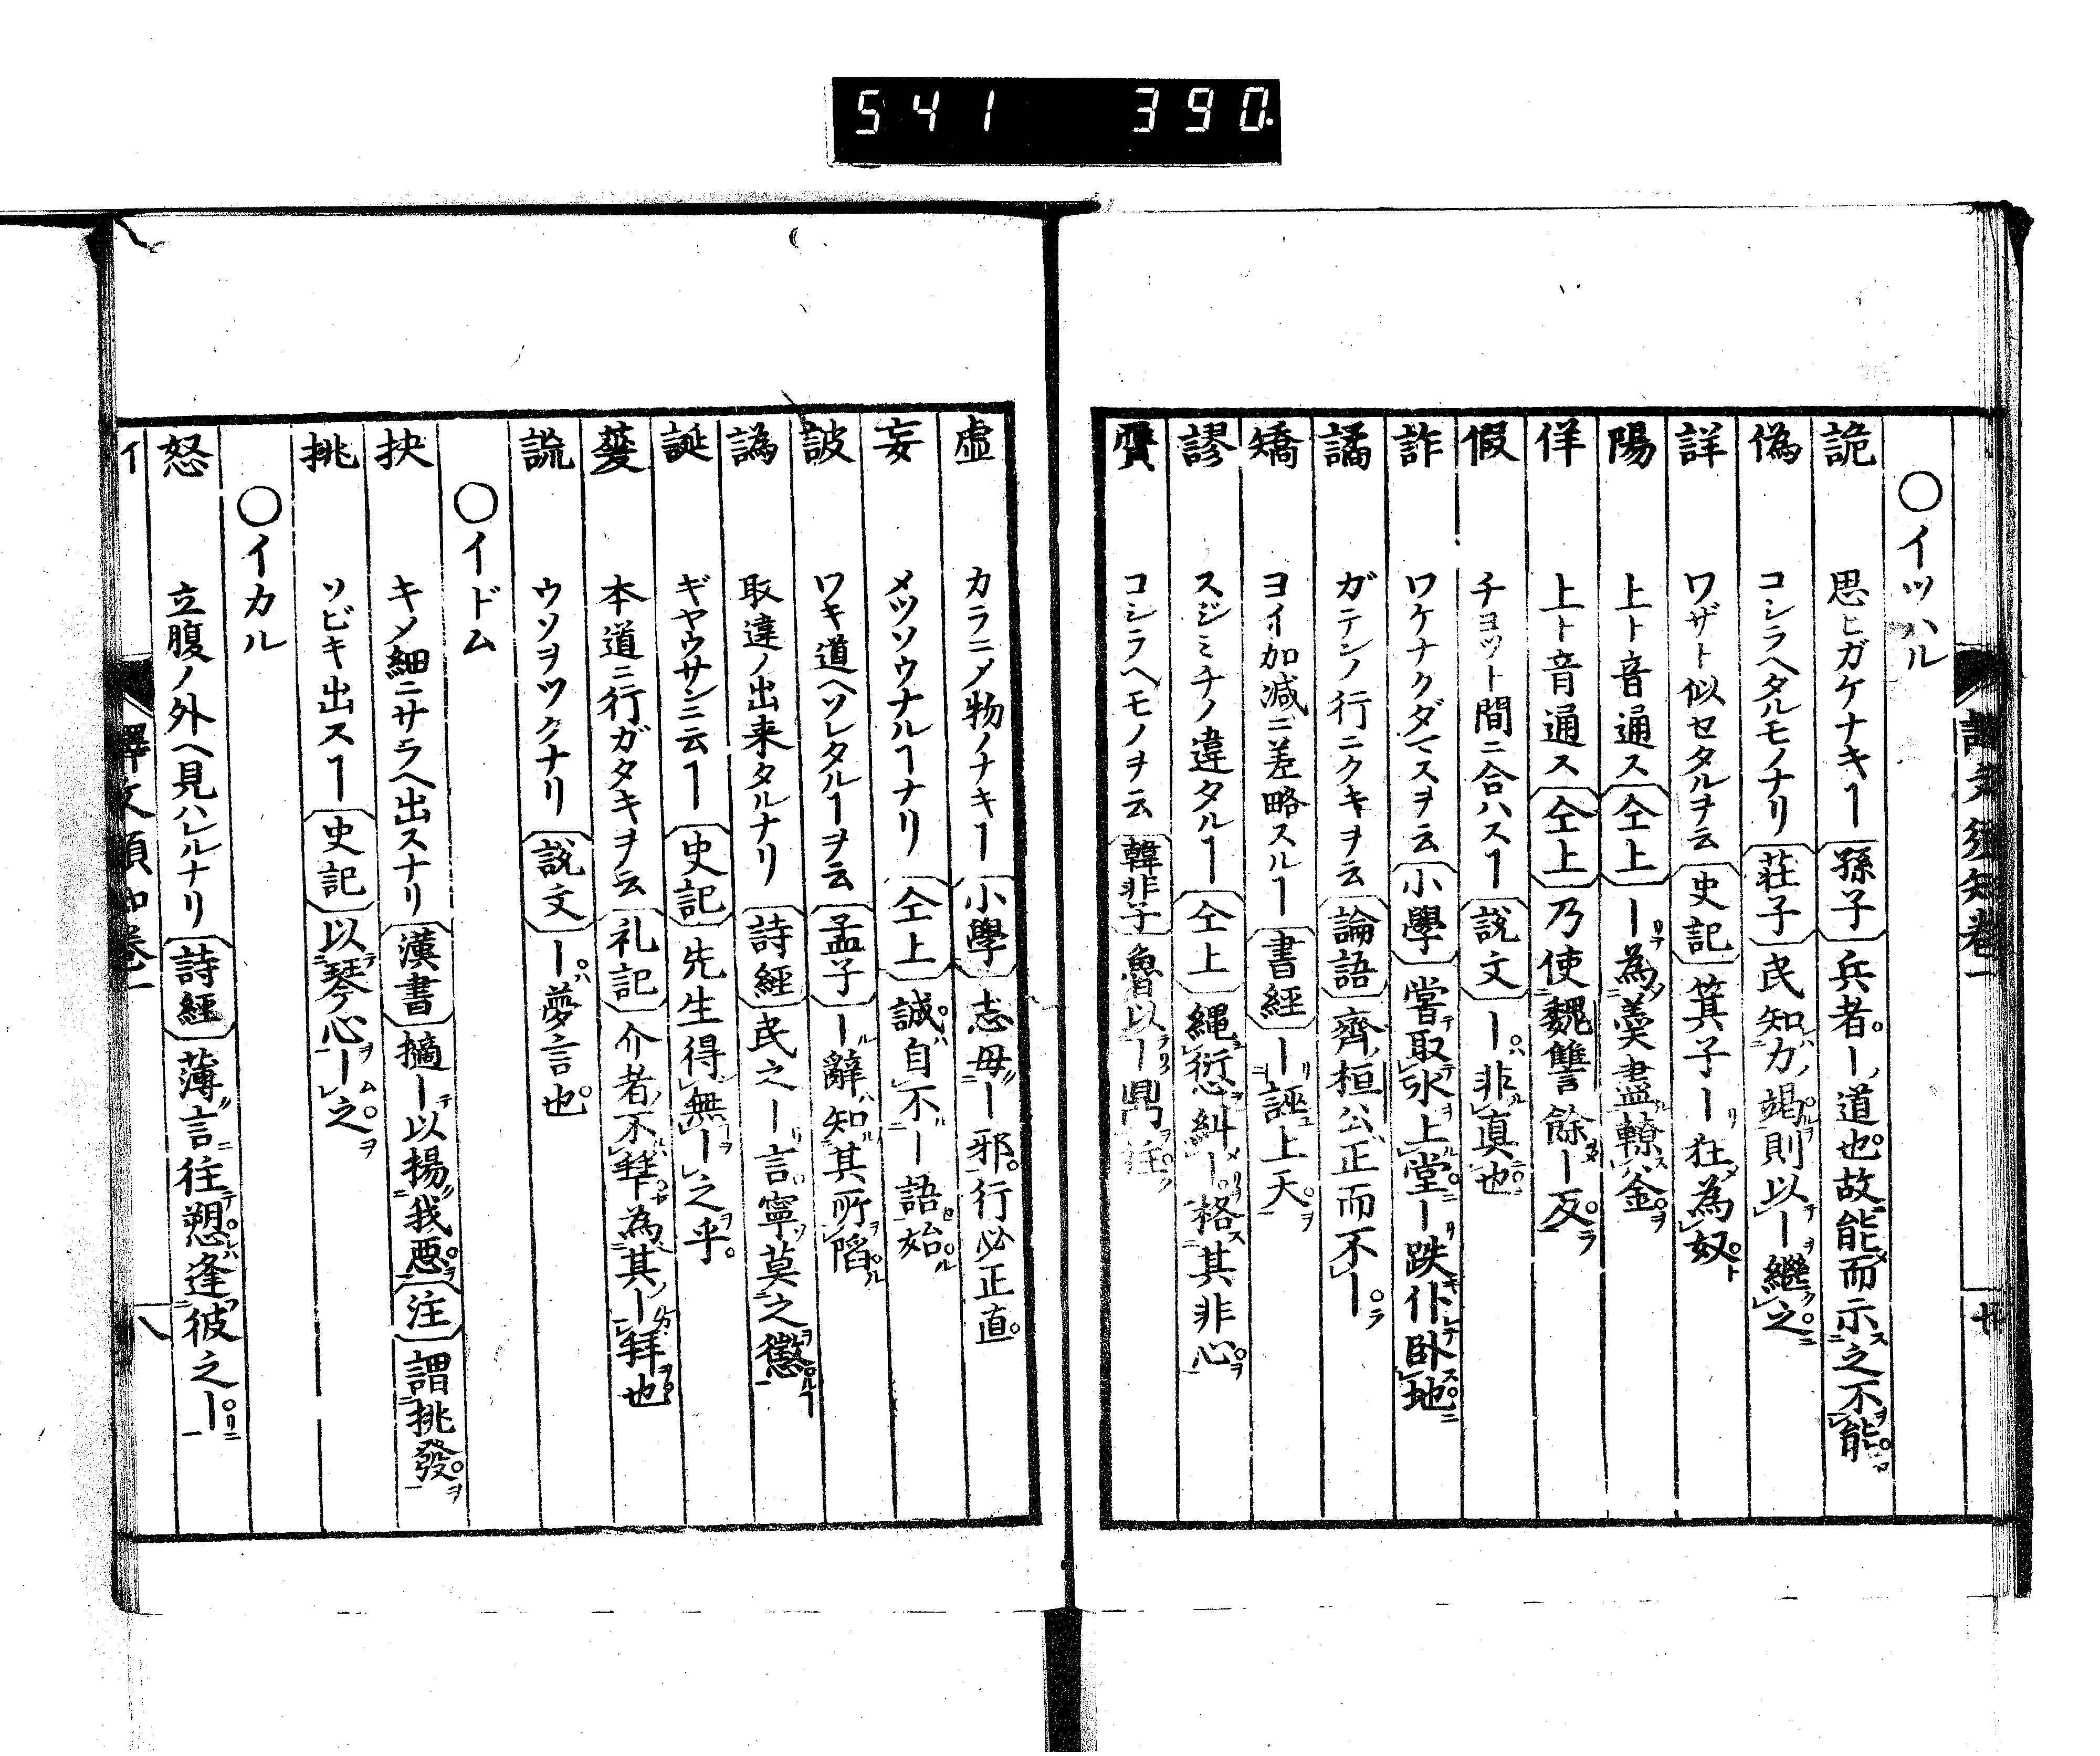 541 390.
譯文須知卷一
○イツハル
詭 思ヒガケナキヿ 孫子 兵者ー道也故能而示之不能
偽 コシラヘタルモノナリ 莊子 民知力竭則以ー繼之
詳 ワザト似セタルヲ云 史記 箕子ー狂為奴
陽 上ト音通ス 仝上 ー為羹盡轑釜
佯 上ト音通ス 仝上 乃使魏讐餘ー反
假 チヨツト間ニ合ハスヿ 説文 ー非真也
詐 ワケナクダマスヲ云 小學 嘗取水上堂ー跌仆臥地
譎 ガテンノ行ニクキヲ云 論語 齊桓公正而不ー
矯 ヨイ加減ニ差略スルヿ 書經 ー誣上天
謬 スジミチノ違タルヿ 仝上 縄愆糾ー格其非心
贋 コシラヘモノヲ云 韓非子 魯以ー鼎往
虚 カラニメ物ノナキヿ 小學 志毋ー邪行必正直
妄 メツソウナルヿナリ 仝上 誠自不ー語始
詖 ワキ道ヘソレタルヿヲ云 孟子 ー辭知其所䧟
譌 取違ノ出来タルナリ 詩經 民之ー言寧莫之懲
誕 ギヤウサンニ云ヿ 史記 先生得無ー之乎
蓌 本道ニ行ガタキヲ云 礼記 介者不拜為其ー拜也
謊 ウソヲツクナリ 説文 ー夢言也
○イドム
抉 キメ細ニサラヘ出スナリ 漢書 擿ー以揚我悪 注 謂挑發
挑 ソビキ出スヿ 史記 以琴心ー之
○イカル
怒 立腹ノ外ヘ見ハレルナリ 詩經 薄言往愬逢彼之ー
イ 譯文須知卷一 八